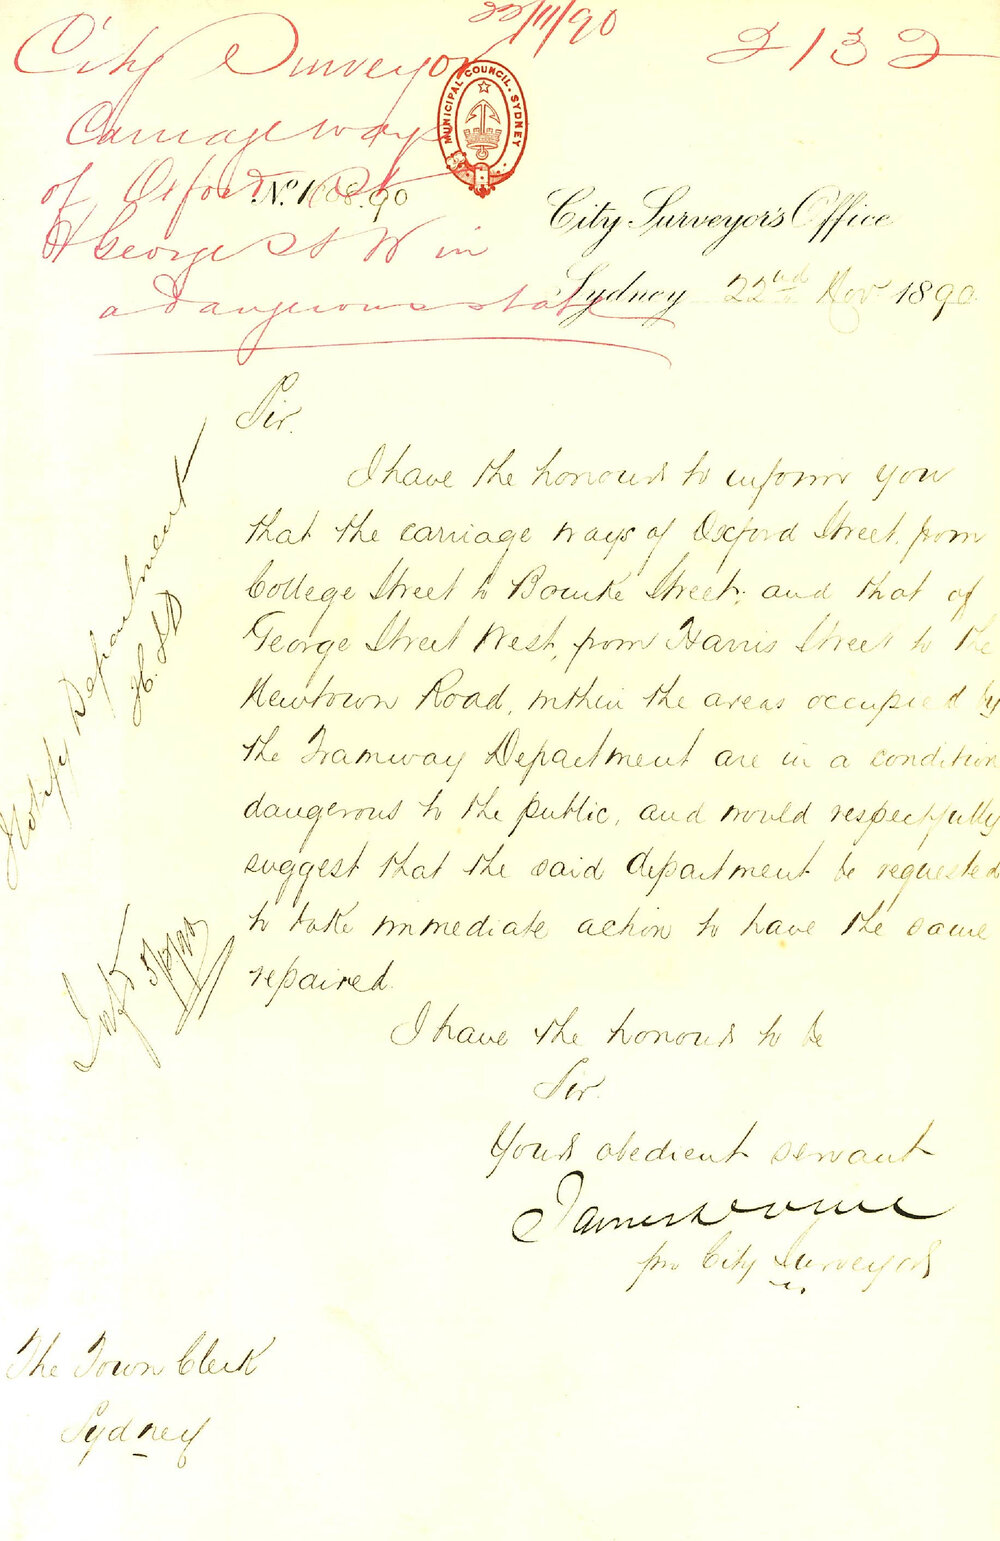 22/11/90
2132
City Surveyor
Carriage ways
of Oxford St
& George St W in
a dangerous state
MUNICIPAL COUNCIL. SYDNEY
No. 1608.90
City Surveyor's Office
Sydney 22nd Nov 1890
Sir.
I have the honour to inform you
that the carriage ways of Oxford Street, from
College Street to Bourke Street; and that of
George Street West, from Harris Street to the
Newtown Road, within the areas occupied by
the Tramway Department are in a condition
dangerous to the public, and would respectfully
suggest that the said department be requested
to take immediate action to have the same
repaired.
I have the honour to be
Sir.
Your obedient servant
James
pro City Surveyor
The Town Clerk
Sydney
Notify Department